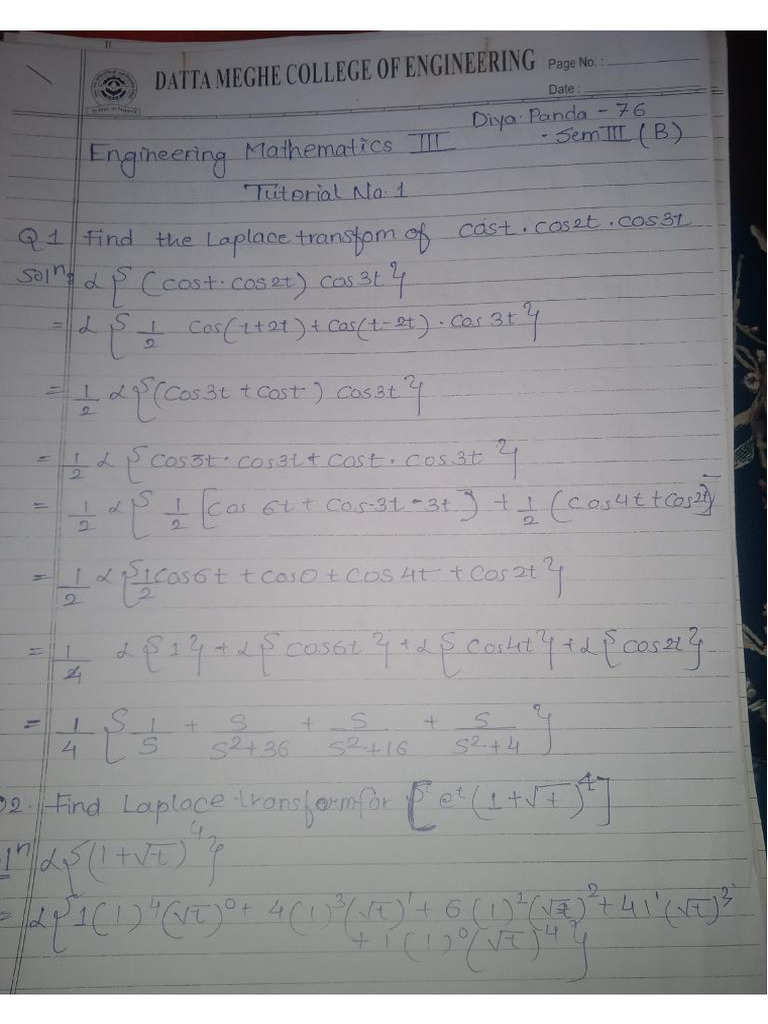 DATTA MEGHE COLLEGE OF ENGINEERING Page No. :
Date :
Diya Panda - 76
Engineering Mathematics III - Sem III (B)
Tutorial No. 1
Q1 Find the Laplace transfom of cost . cos2t . cos3t
Soln ℒ{(cost. cos2t) cos3t}
= ℒ{1/2 cos(t+2t) + cos(t-2t) . cos 3t}
= 1/2 ℒ{(cos3t + cost) cos3t}
= 1/2 ℒ{cos3t. cos3t + cost. cos3t}
= 1/2 ℒ{1/2 [cos 6t + cos-3t-3t] + 1/2 (cos4t + cos2t)}
= 1/2 ℒ{1/2 cos6t + cos0 + cos4t + cos2t}
= 1/4 ℒ{1} + ℒ{cos6t} + ℒ{cos4t} + ℒ{cos2t}
= 1/4 {1/S + S/S²+36 + S/S²+16 + S/S²+4}
Q2. Find Laplace transform for [e^t (1+√t)^4]
ln ℒ{(1+√t)^4}
= ℒ{1(1)^4(√t)^0 + 4(1)^3(√t)^1 + 6(1)^2(√t)^2 + 41^1(√t)^3
+ 1(1)^0(√t)^4}